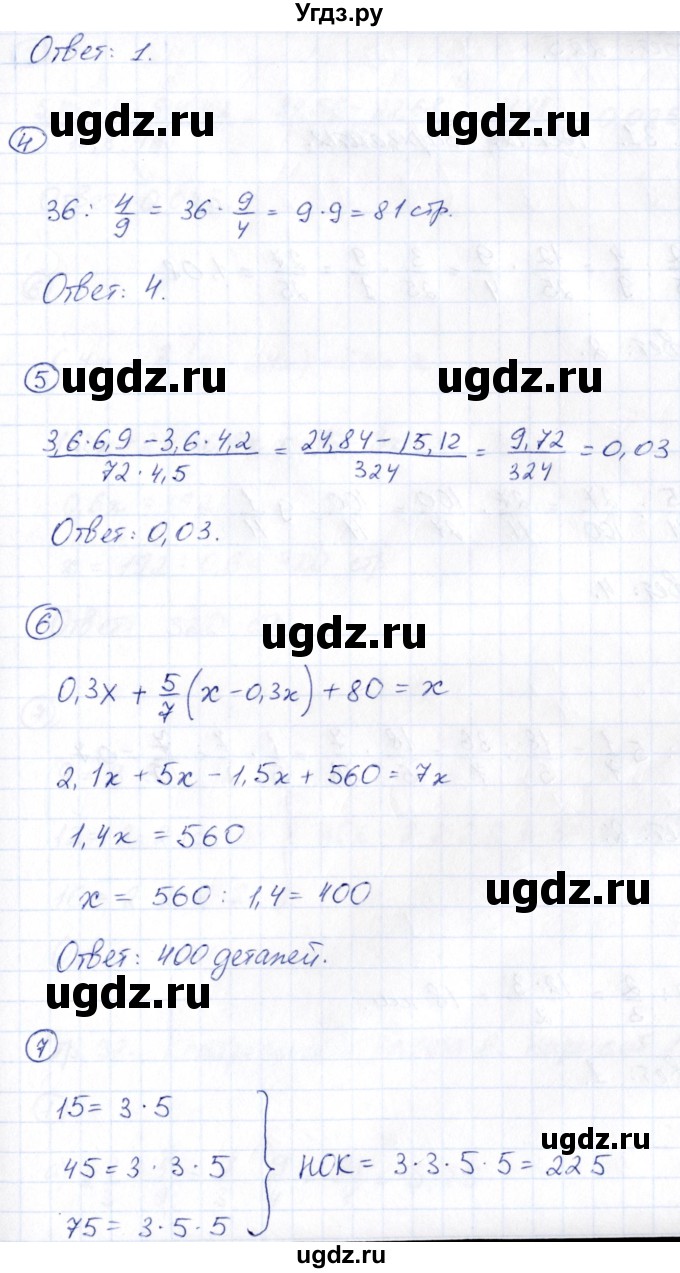 Угдз.ру
Ответ: 1.
ugdz.ru ugdz.ru
4
36 : 4/9 = 36 · 9/4 = 9 · 9 = 81 стр.
Ответ: 4.
5 ugdz.ru ugdz.ru
(3,6·6,9 − 3,6·4,2)/(72·4,5) = (24,84 − 15,12)/324 = 9,72/324 = 0,03
Ответ: 0,03.
6 ugdz.ru
0,3x + 5/7 (x − 0,3x) + 80 = x
2,1x + 5x − 1,5x + 560 = 7x
1,4x = 560
x = 560 : 1,4 = 400
ugdz.ru
Ответ: 400 деталей.
ugdz.ru
7
15 = 3 · 5
ugdz.ru
45 = 3 · 3 · 5 } НОК = 3 · 3 · 5 · 5 = 225
75 = 3 · 5 · 5
ugdz.ru